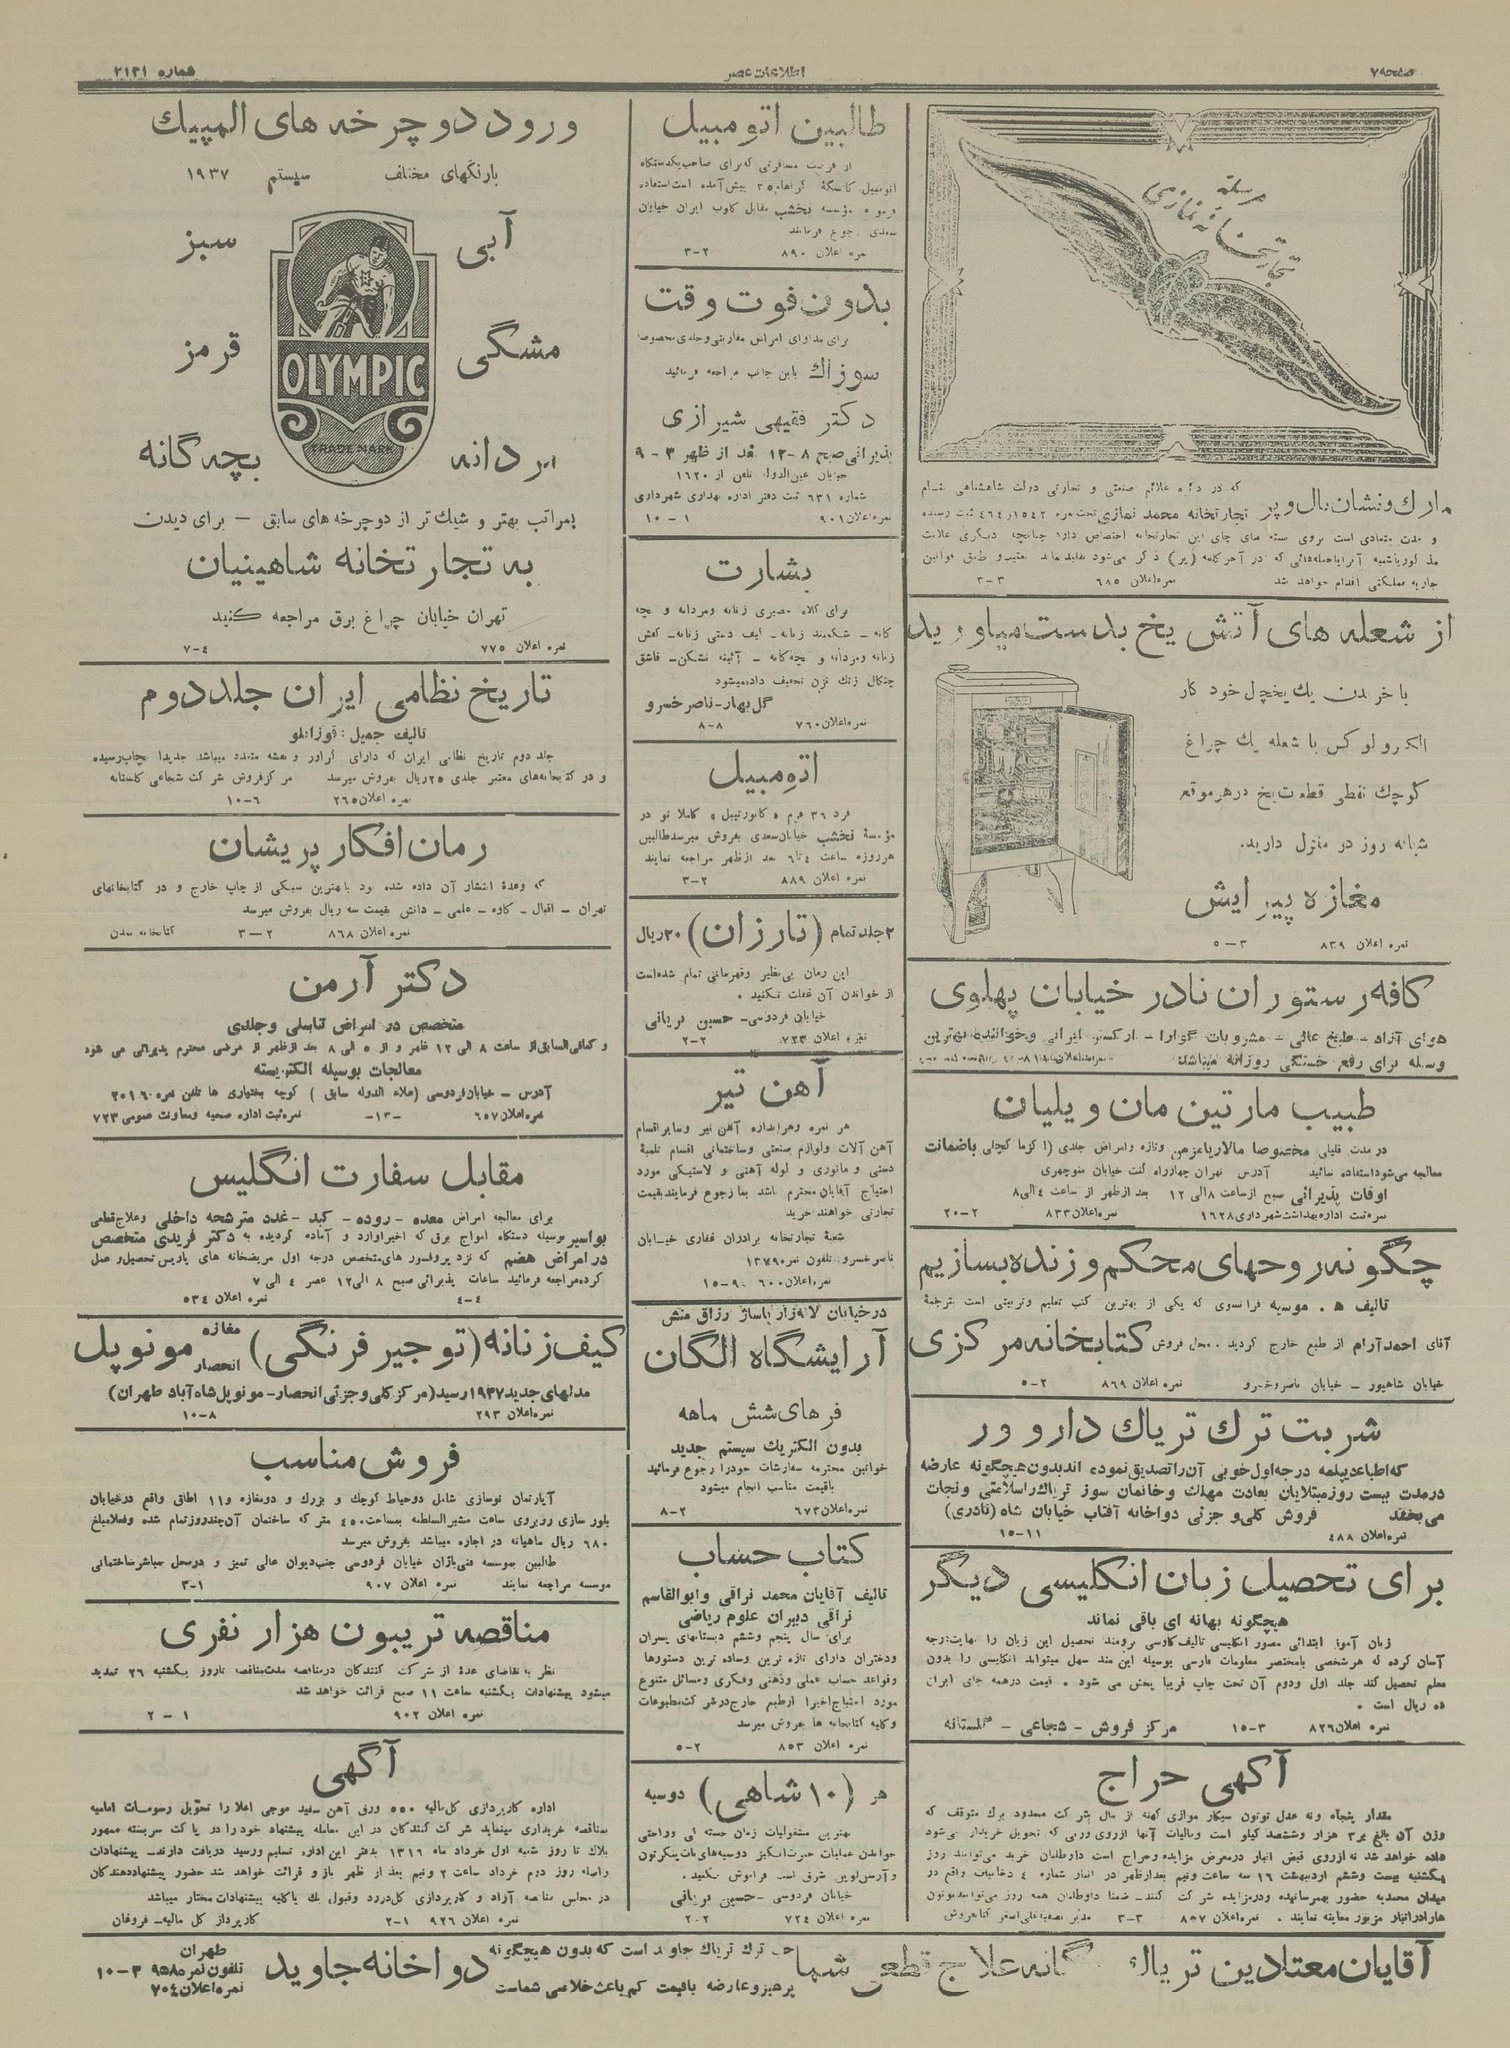 صفحه ۷
اطلاعات عصر
شماره ۳۱۳۱
مرسله
تجارتخانه نمازی
که در دایره علائم صنعتی و تجارتی دولت شاهنشاهی بنام
مارك و نشان بال و پر تجارتخانه محمد نمازی تحت نمره ۱۵۴۲ ر ۴۶۴ ثبت رسیده
و مدت متمادی است بروی بسته های چای این تجارتخانه اختصاص دارد چنانچه دیگری علامت
جاریه مملکتی اقدام خواهد شد نمره اعلان ۶۸۵ ۳-۳
از شعله های آتش یخ بدست میاورید
با خریدن یك یخچال خود کار
الکترولوکس با شعله یك چراغ
کوچك نفطی قطعات یخ در هر موقع
شبانه روز در منزل دارید.
مغازه پیرایش
نمره اعلان ۸۳۹ ۳-۵
کافه رستوران نادر خیابان پهلوی
هوای آزاد - طبخ عالی - مشروبات گوارا - ارکستر ایرانی و خواننده بهترین
وسیله برای رفع خستگی روزانه میباشد
طبیب مارتین مان ویلیان
در مدت قلیلی مخصوصا مالاریا مزمن و تازه و امراض جلدی (اگزما کچلی) باضمانت
معالجه می‌شود استفاده نمائید آدرس تهران چهارراه کنت خیابان منوچهری
اوقات پذیرائی صبح از ساعت ۸ الی ۱۲ بعد از ظهر از ساعت ٤ الی ۸
نمره ثبت اداره بهداشت شهرداری ۱۶۲۸ نمره اعلان ۸۳۳ ۲-۲۰
چگونه روحهای محکم و زنده بسازیم
تالیف ه . موسیه فرانسوی که یکی از بهترین کتب تعلیم و تربیتی است بترجمهٔ
آقای احمد آرام از طبع خارج گردید . محل فروش کتابخانه مرکزی
خیابان شاهپور - خیابان ناصر خسرو نمره اعلان ۸۶۹ ۲-۵
شربت ترك تریاك دارو ور
که اطباء دیپلمه درجه اول خوبی آن را تصدیق نموده اند بدون هیچگونه عارضه
در مدت بیست روز مبتلایان بعادت مهلك و خانمان سوز تریاك را سلامتی و نجات
می بخشد فروش کلی و جزئی دواخانه آفتاب خیابان شاه (نادری)
نمره اعلان ۴۸۸ ۱۱-۱۵
برای تحصیل زبان انگلیسی دیگر
هیچگونه بهانه ای باقی نماند
زبان آموز ابتدائی مصور انگلیسی تالیف کارسی برومند تحصیل این زبان را بنهایت درجه
آسان کرده که هر شخصی با مختصر معلومات فارسی بوسیله این متد سهل میتواند انگلیسی را بدون
معلم تحصیل کند جلد اول و دوم آن تحت چاپ قریبا پخش می شود . قیمت در همه جای ایران
ده ریال است .
نمره اعلان ۸۲۶ ۳-۱۵ مرکز فروش - شجاعی - گلستانه
آگهی حراج
مقدار پنجاه و نه عدل توتون سیگار موازی کهنه از مال شرکت محدود برك متوقف که
وزن آن بالغ بر ۳ هزار و ششصد کیلو است و مالیات آنها از روی وزنی که تحویل خریدار می‌شود
داده خواهد شد نه از روی قبض انبار در معرض مزایده و حراج است داوطلبان خرید می‌توانند روز
یکشنبه بیست و ششم اردیبهشت ۱۶ سه ساعت و نیم بعد از ظهر در انبار شماره ٤ دخانیات واقع در
میدان محمدیه حضور بهمرسانیده و در مزایده شرکت کنند - ضمنا داوطلبان همه روز می‌توانند توتون
ها را در انبار مزبور معاینه نمایند . نمره اعلان ۸۵۷ ۳-۳ مدیر تصفیه علی اصغر کتابفروش
طالبین اتومبیل
از فرصت مسافرتی که برای صاحب یکدستگاه
نمره اعلان ۸۹۰ ۲-۳
بدون فوت وقت
برای مداوای امراض مقاربتی و جلدی مخصوصا
سوزاك باین جانب مراجعه فرمائید
دکتر فقیهی شیرازی
پذیرائی صبح ۸-۱۲ بعد از ظهر ۳-۹
خیابان عین الدوله تلفن از ۱۶۲۰
شماره ۶۳۱ ثبت دفتر اداره بهداری شهرداری
نمره اعلان ۹۰۱ ۱-۱۰
بشارت
برای کلاه حصیری زنانه و مردانه و بچه
گانه - شکمبند زنانه - کیف دستی زنانه - کفش
زنانه و مردانه و بچه گانه - آئینه نشکن - قاشق
چنگال زنك نزن تخفیف داده میشود
گل بهار - ناصر خسرو
نمره اعلان ۷۶۰ ۸-۸
اتومبیل
فرد ۳۶ فرم « کانورتیبل » کاملا نو در
مؤسسهٔ نخشب خیابان سعدی بفروش میرسد طالبین
هر روزه ساعت ٤ تا ٦ بعد از ظهر مراجعه نمایند
نمره اعلان ۸۸۹ ۲-۳
۲ جلد تمام (تارزان) ۲۰ ریال
این رمان بی‌نظیر و قهرمانی تمام شده است
از خواندن آن غفلت نکنید .
خیابان فردوسی - حسین دریانی
نمره اعلان ۷۲۳ ۲-۲
آهن تیر
هر نمره و هر اندازه آهن تیر و سایر اقسام
آهن آلات و لوازم صنعتی و ساختمانی اقسام تلمبهٔ
دستی و ماتوری و لوله آهنی و لاستیکی مورد
احتیاج آقایان محترم باشد بما رجوع فرمایند بقیمت
تجارتی خواهند خرید
شعبهٔ تجارتخانه برادران غفاری خیابان
ناصر خسرو. تلفون نمره ۱۳۷۹
نمره اعلان ۶۰۰ ۹-۱۵
در خیابان لاله‌زار پاساژ رزاق منش
آرایشگاه الگان
فرهای شش ماهه
بدون الکتریك سیستم جدید
خوانین محترمه سفارشات خود را رجوع فرمائید
باقیمت مناسب انجام میشود
نمره اعلان ۶۷۳ ۲-۸
کتاب حساب
تالیف آقایان محمد نراقی و ابوالقاسم
نراقی دبیران علوم ریاضی
برای سال پنجم و ششم دبستانهای پسران
و دختران دارای تازه ترین و ساده ترین دستورها
و قواعد حساب عملی و ذهنی و فکری و مسائل متنوع
مورد احتیاج اخیرا از طبع خارج در شرکت مطبوعات
و کلیه کتابخانه ها بفروش میرسد
نمره اعلان ۸۵۳ ۲-۵
هر (۱۰ شاهی) دوسیه
بهترین مشغولیات زمان خستگی و راحتی
خواندن عملیات حیرت انگیز دوسیه‌های نات پینکرتون
و آرسن لوپن شرق است فراموش نکنید .
خیابان فردوسی - حسین دریانی
نمره اعلان ۷۲۴ ۲-۲
ورود دوچرخه های المپیك
بارنگهای مختلف سیستم ۱۹۳۷
آبی سبز
مشگی قرمز
مردانه بچه گانه
OLYMPIC
TRADE MARK
بمراتب بهتر و شیك تر از دوچرخه های سابق - برای دیدن
به تجارتخانه شاهینیان
تهران خیابان چراغ برق مراجعه کنید
نمره اعلان ۷۷۵ ۴-۷
تاریخ نظامی ایران جلد دوم
تالیف جمیل قوزانلو
جلد دوم تاریخ نظامی ایران که دارای گراور و نقشه متعدد میباشد جدیدا بچاپ رسیده
و در کتابخانه‌های معتبر جلدی ۲۵ ریال بفروش میرسد مرکز فروش شرکت شجاعی گلستانه
نمره اعلان ۲۶۵ ۶-۱۰
رمان افکار پریشان
که وعدهٔ انتشار آن داده شده بود با بهترین سبکی از چاپ خارج و در کتابخانهای
تهران - اقبال - کاوه - علمی - دانش بقیمت سه ریال بفروش میرسد
نمره اعلان ۸۶۸ ۲-۳ کتابخانه تمدن
دکتر آرمن
متخصص در امراض تناسلی و جلدی
و کمافی السابق از ساعت ۸ الی ۱۲ ظهر و از ٥ الی ۸ بعد از ظهر از مرضی محترم پذیرائی می شود
معالجات بوسیله الکتریسته
آدرس - خیابان فردوسی (علاء الدوله سابق ) کوچه بختیاری ها تلفن نمره ۲۰۱۶۰
نمره اعلان ۶۵۷ -۱۳- نمره ثبت اداره صحیه و معاونت عمومی ۷۲۳
مقابل سفارت انگلیس
برای معالجه امراض معده - روده - کبد - غدد مترشحه داخلی و علاج قطعی
بواسیر بوسیله دستگاه امواج برق که اخیرا وارد و آماده گردیده به دکتر فریدی متخصص
در امراض هضم که نزد پروفسور های متخصص درجه اول مریضخانه های پاریس تحصیل و عمل
کرده مراجعه فرمائید ساعات پذیرائی صبح ۸ الی ۱۲ عصر ٤ الی ۷
٤-٤ نمره اعلان ۵۳۴
کیف زنانه (توجیر فرنگی) مغازه انحصار مونوپل
مدلهای جدید ۱۹۳۷ رسید (مرکز کلی و جزئی انحصار - مونوپل شاه آباد طهران)
نمره اعلان ۲۹۳ ۸-۱۰
فروش مناسب
آپارتمان نوسازی شامل دو حیاط کوچك و بزرك و دو مغازه و ۱۱ اطاق واقع در خیابان
بلور سازی روبروی ساعت مشیر السلطنه بمساحت ۴۵۰ متر که ساختمان آن چند روز تمام شده و فعلا مبلغ
۶۸۰ ریال ماهیانه در اجاره میباشد بفروش میرسد
طالبین بموسسه فنی باژان خیابان فردوسی جنب دیوان عالی تمیز و در محل مباشر ساختمانی
موسسه مراجعه نمایند نمره اعلان ۹۰۷ ۱-۳
مناقصه تریبون هزار نفری
نظر بتقاضای عدهٔ از شرکت کنندگان در مناقصه مدت مناقصه تا روز یکشنبه ۲۶ تمدید
میشود پیشنهادات یکشنبه ساعت ۱۱ صبح قرائت خواهد شد
نمره اعلان ۹۰۲ ۱-۲
آگهی
اداره کارپردازی کل مالیه ۵۵۰ ورق آهن سفید موجی اعلا را تحویل رسومات امامیه
بمناقصه خریداری مینماید شرکت کنندگان در این معامله پیشنهاد خود را در پاکت سربسته ممهور
بلاك تا روز شنبه اول خرداد ماه ۱۳۱۶ بدفتر این اداره تسلیم و رسید دریافت دارند - پیشنهادات
واصله روز دوم خرداد ساعت ۲ و نیم بعد از ظهر باز و قرائت خواهد شد حضور پیشنهاد دهندگان
در مجلس مناقصه آزاد و کارپردازی کل در رد و قبول یك یا کلیه پیشنهادات مختار میباشد
نمره اعلان ۹۲۶ ۱-۲ کارپرداز کل مالیه - فروغان
آقایان معتادین تریاك یگانه علاج قطعی شما
حب ترك تریاك جاوید است که بدون هیچگونه
پرهیز و عارضه باقیمت کم باعث خلاصی شماست
دواخانه جاوید
طهران
تلفون نمره ۹۵۸۰ ۳-۱۰
نمره اعلان ۷۰۴